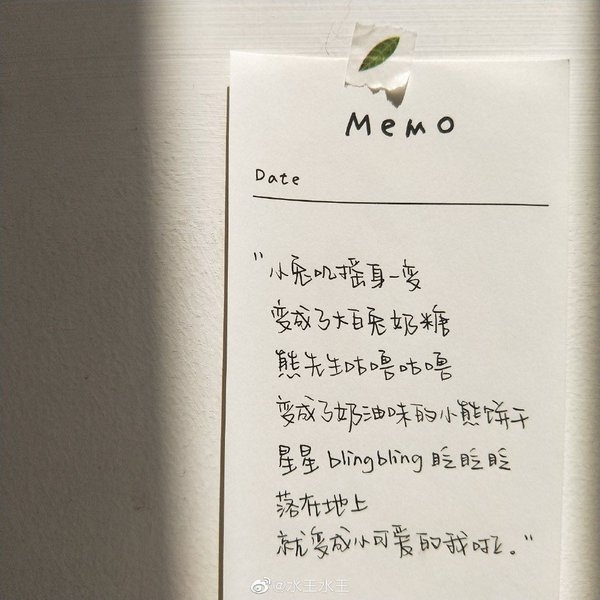 Memo
Date
"小兔叽摇身一变
变成了大白兔奶糖
熊先生咕噜咕噜
变成了奶油味的小熊饼干
星星blingbling眨眨眨
落在地上
就变成小可爱的我啦。"
@水王水王